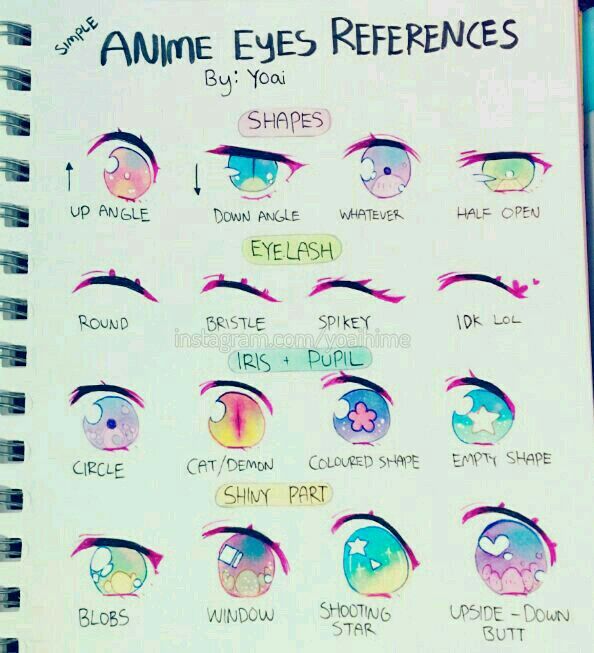 SIMPLE
ANIME EYES REFERENCES
By: Yoai
SHAPES
UP ANGLE
DOWN ANGLE
WHATEVER
HALF OPEN
EYELASH
ROUND
BRISTLE
SPIKEY
IDK LOL
instagram.com/yoaihime
IRIS + PUPIL
CIRCLE
CAT/DEMON
COLOURED SHAPE
EMPTY SHAPE
SHINY PART
BLOBS
WINDOW
SHOOTING
STAR
UPSIDE-DOWN
BUTT